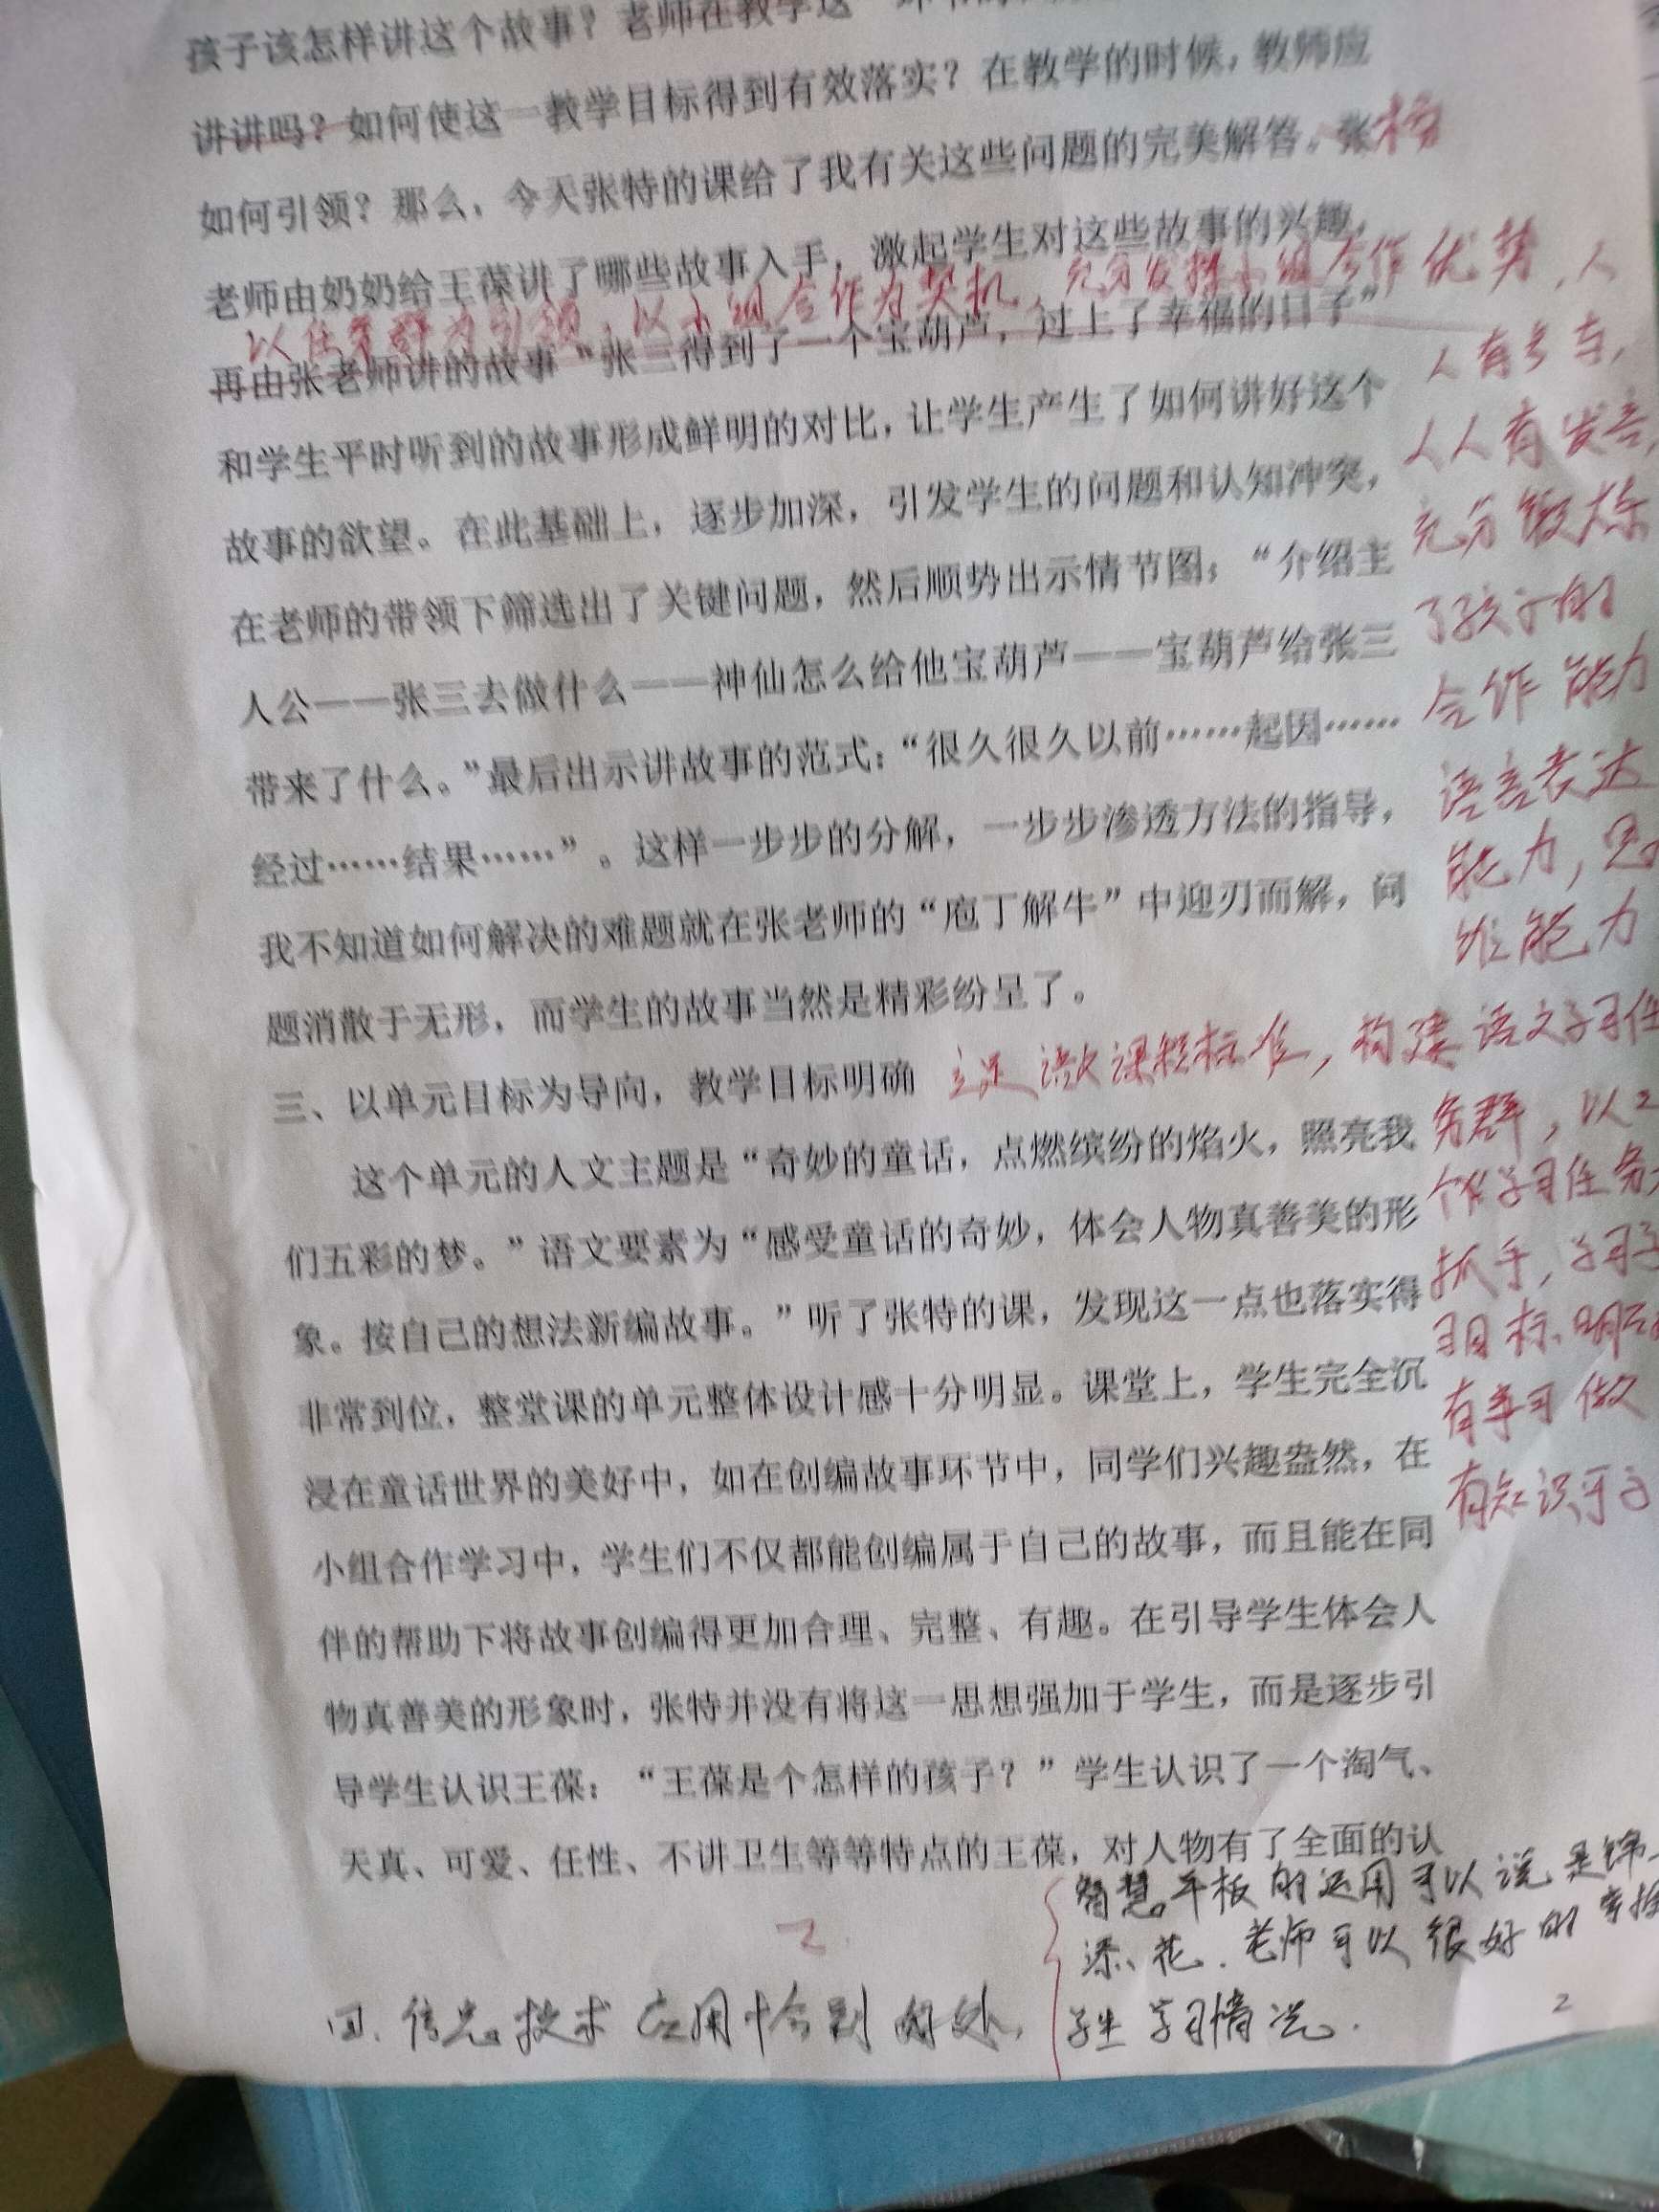 孩子该怎样讲这个故事？老师在教学这一环节的
讲讲吗？如何使这一教学目标得到有效落实？在教学的时候，教师应
如何引领？那么，今天张特的课给了我有关这些问题的完美解答。张杨
老师由奶奶给王葆讲了哪些故事入手，激起学生对这些故事的兴趣，
以任务群为引领，以小组合作为契机，充分发挥小组合作优势，人
再由张老师讲的故事“张三得到了一个宝葫芦，过上了幸福的日子”
人有参与，
和学生平时听到的故事形成鲜明的对比，让学生产生了如何讲好这个
人人有发言，
故事的欲望。在此基础上，逐步加深，引发学生的问题和认知冲突，
充分锻炼
在老师的带领下筛选出了关键问题，然后顺势出示情节图：“介绍主
了孩子的
人公——张三去做什么——神仙怎么给他宝葫芦——宝葫芦给张三
合作能力
带来了什么。”最后出示讲故事的范式：“很久很久以前……起因……
语言表达
经过……结果……”。这样一步步的分解，一步步渗透方法的指导，
能力，思
我不知道如何解决的难题就在张老师的“庖丁解牛”中迎刃而解，问
维能力
题消散于无形，而学生的故事当然是精彩纷呈了。
三、以单元目标为导向，教学目标明确
立足语文课程标准，构建语文学习任
务群，以
这个单元的人文主题是“奇妙的童话，点燃缤纷的焰火，照亮我
个学习任务
们五彩的梦。”语文要素为“感受童话的奇妙，体会人物真善美的形
抓手，学习
象。按自己的想法新编故事。”听了张特的课，发现这一点也落实得
习目标明
非常到位，整堂课的单元整体设计感十分明显。课堂上，学生完全沉
有事可做
浸在童话世界的美好中，如在创编故事环节中，同学们兴趣盎然，在
有知识可
小组合作学习中，学生们不仅都能创编属于自己的故事，而且能在同
伴的帮助下将故事创编得更加合理、完整、有趣。在引导学生体会人
物真善美的形象时，张特并没有将这一思想强加于学生，而是逐步引
导学生认识王葆：“王葆是个怎样的孩子？”学生认识了一个淘气、
天真、可爱、任性、不讲卫生等等特点的王葆，对人物有了全面的认
智慧平板的运用可以说是锦
添花．老师可以很好的掌控
学生学习情况．
四．信息技术应用恰到好处，
2